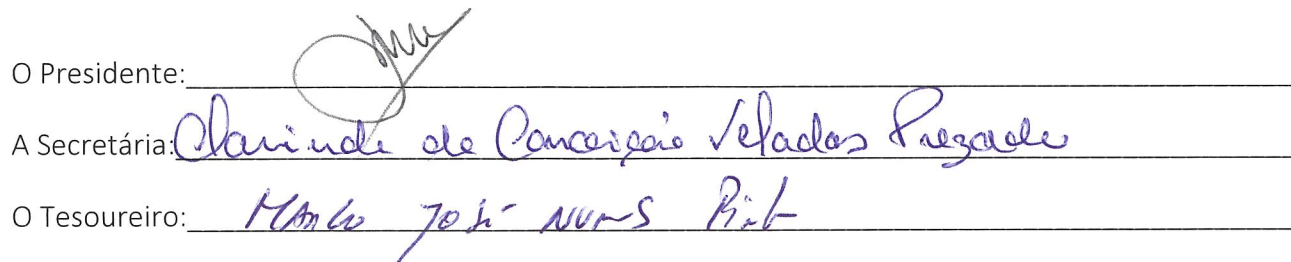 O Presidente:
A Secretária: Clarinda da Conceição Velados Prezado
O Tesoureiro: José Nunes Pinto